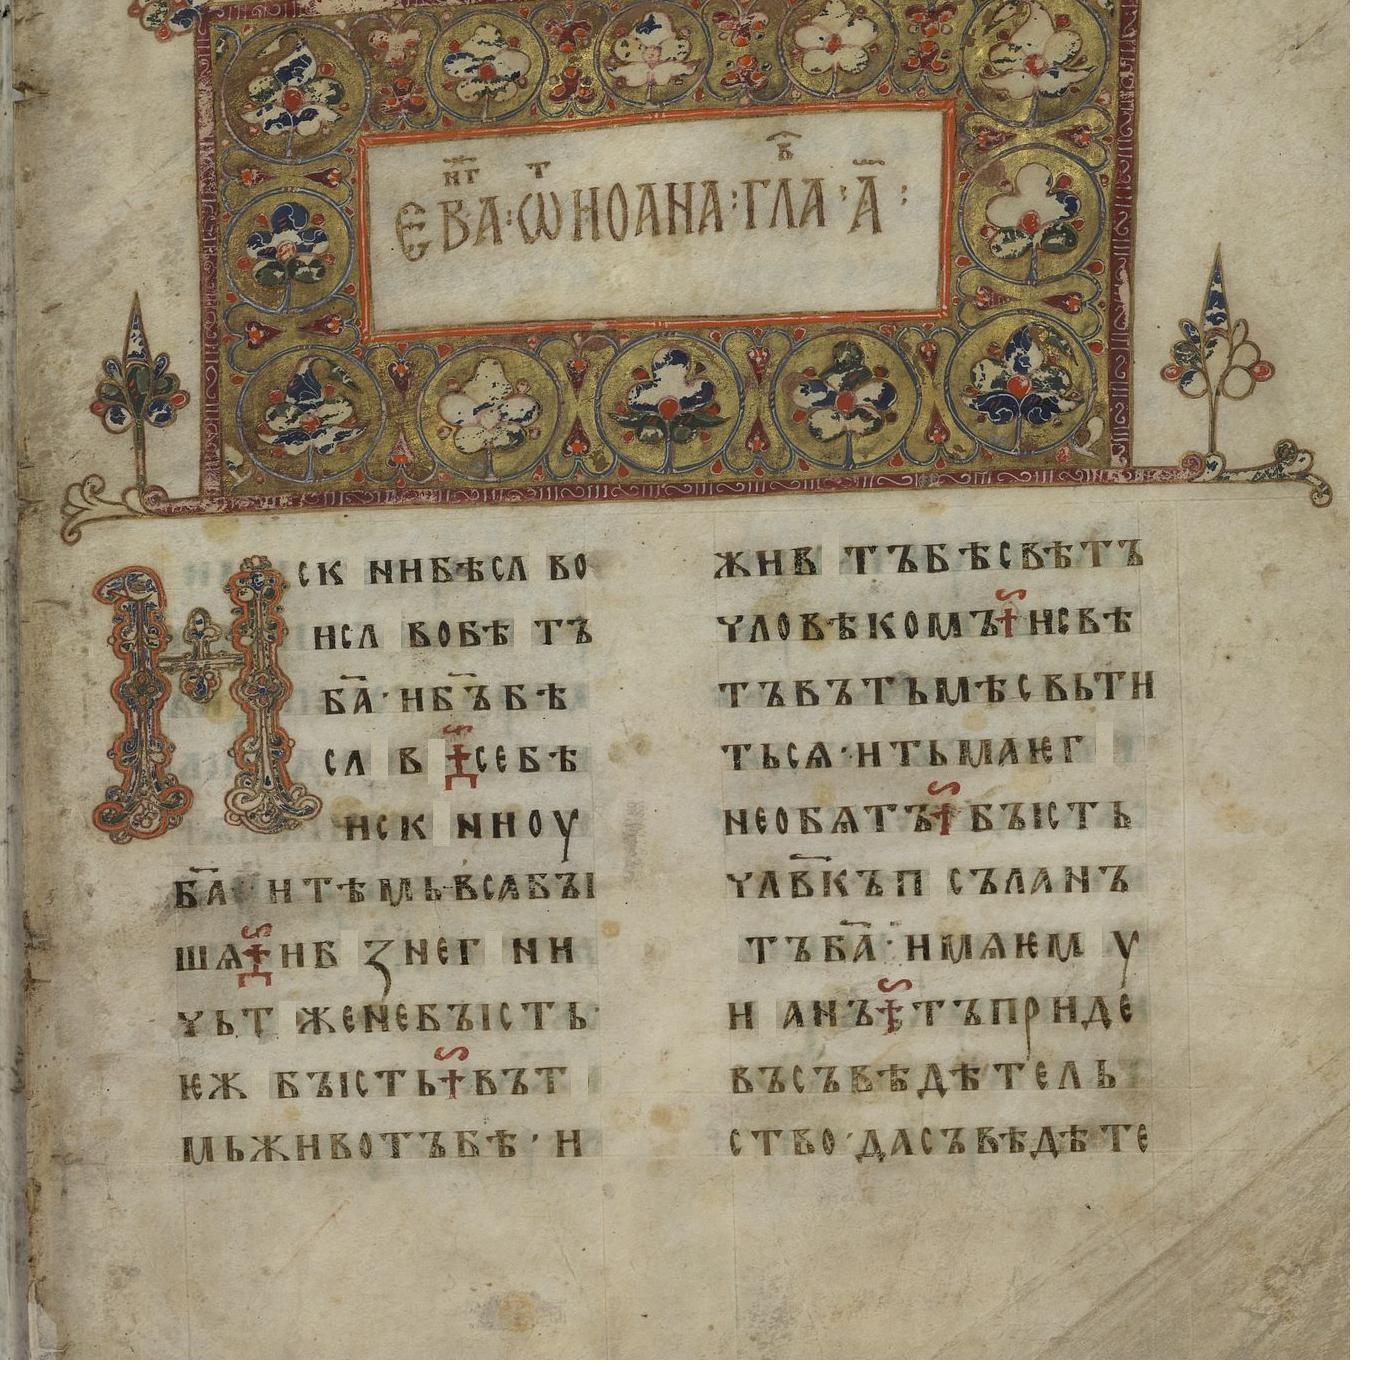 ЕВА҃НГ : Ѿ ИОАНА : ГЛА҃В : А҃ :
ИСК НИ БѢ СЛ ВО
И СЛ ВО БѢ ТЪ
БА҃ · И Б҃Ъ БѢ
СЛ В СЕ БѢ
ИСК НИ ОУ
БА҃ · И ТѢМЬ ВСѦ БЪІ
ШѦ И Б ЗНЕГ НИ
ЧЬТ ЖЕ НЕ БЪІСТЬ ·
ѤЖ БЪІСТЬ ВЪ Т
МЬ ЖИВОТЪ БѢ · И
ЖИВ ТЪ БѢ СВѢТЪ
ЧЛОВѢКОМЪ И СВѢ
ТЪ ВЪ ТЬМѢ СВЬТИ
ТЬСѦ · И ТЬМА ѤГ
НЕ ОБѦТЪ БЪІСТЬ
ЧЛВ҃КЪ П СЪЛАНЪ
ТЪ БА҃ · ИМѦ ѤМ У
И АНЪ ТЪ ПРИДЕ
ВЪ СЪВѢДѢТЕЛЬ
СТВО · ДА СЪВѢДѢТЕ